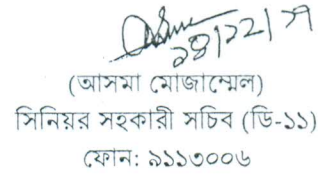 ১৪/১২/১৭
(আসমা মোজাম্মেল)
সিনিয়র সহকারী সচিব (ডি-১১)
ফোন: ৯১১৩০০৬